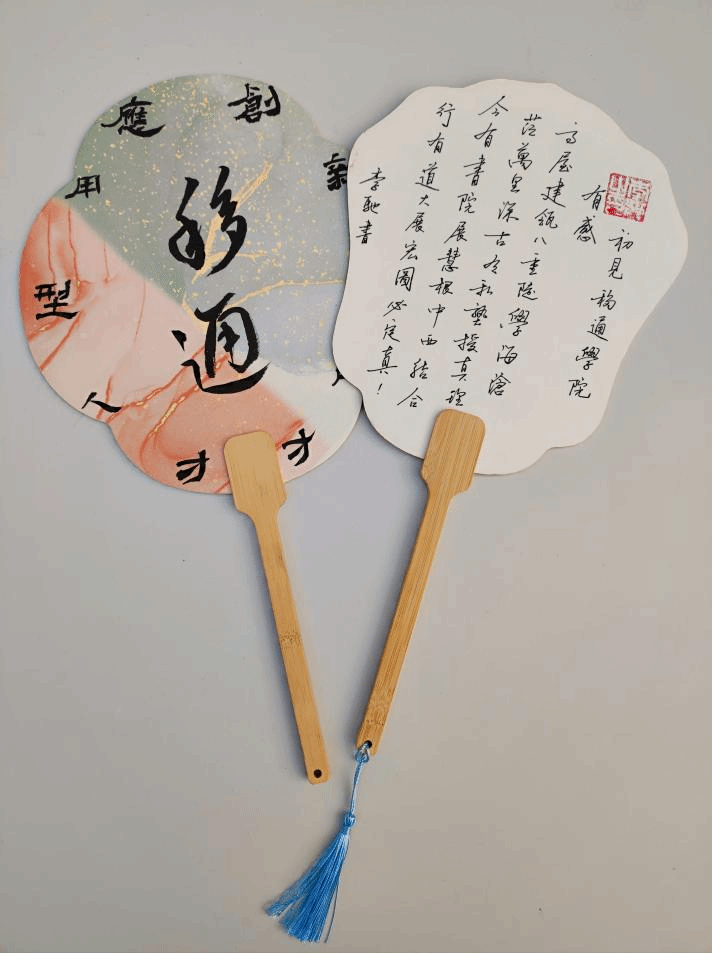 移通
應用型人才
創新人才
初見移通學院
有感
高屋建瓴八重學海滄
茫萬里深古私塾授真理
今有書院展慧根中西結合
行有道大展宏圖必定真！
李馳書